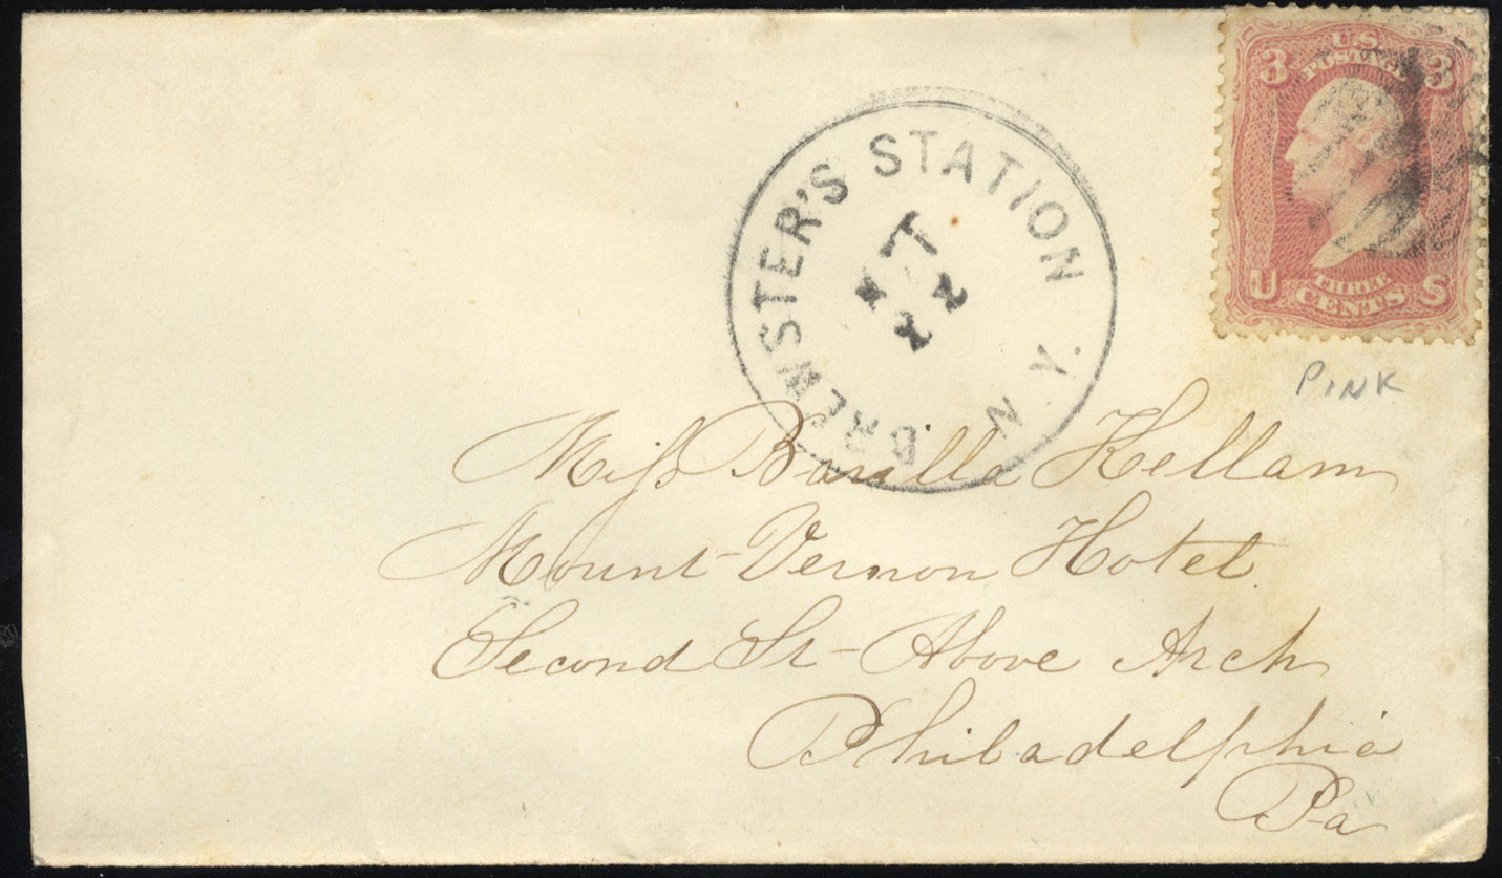 3 US 3
POSTAGE
U THREE S
CENTS
PINK
BREWSTER'S STATION N.Y.
Miss Barilla Kellam
Mount Vernon Hotel
Second St Above Arch
Philadelphia
Pa